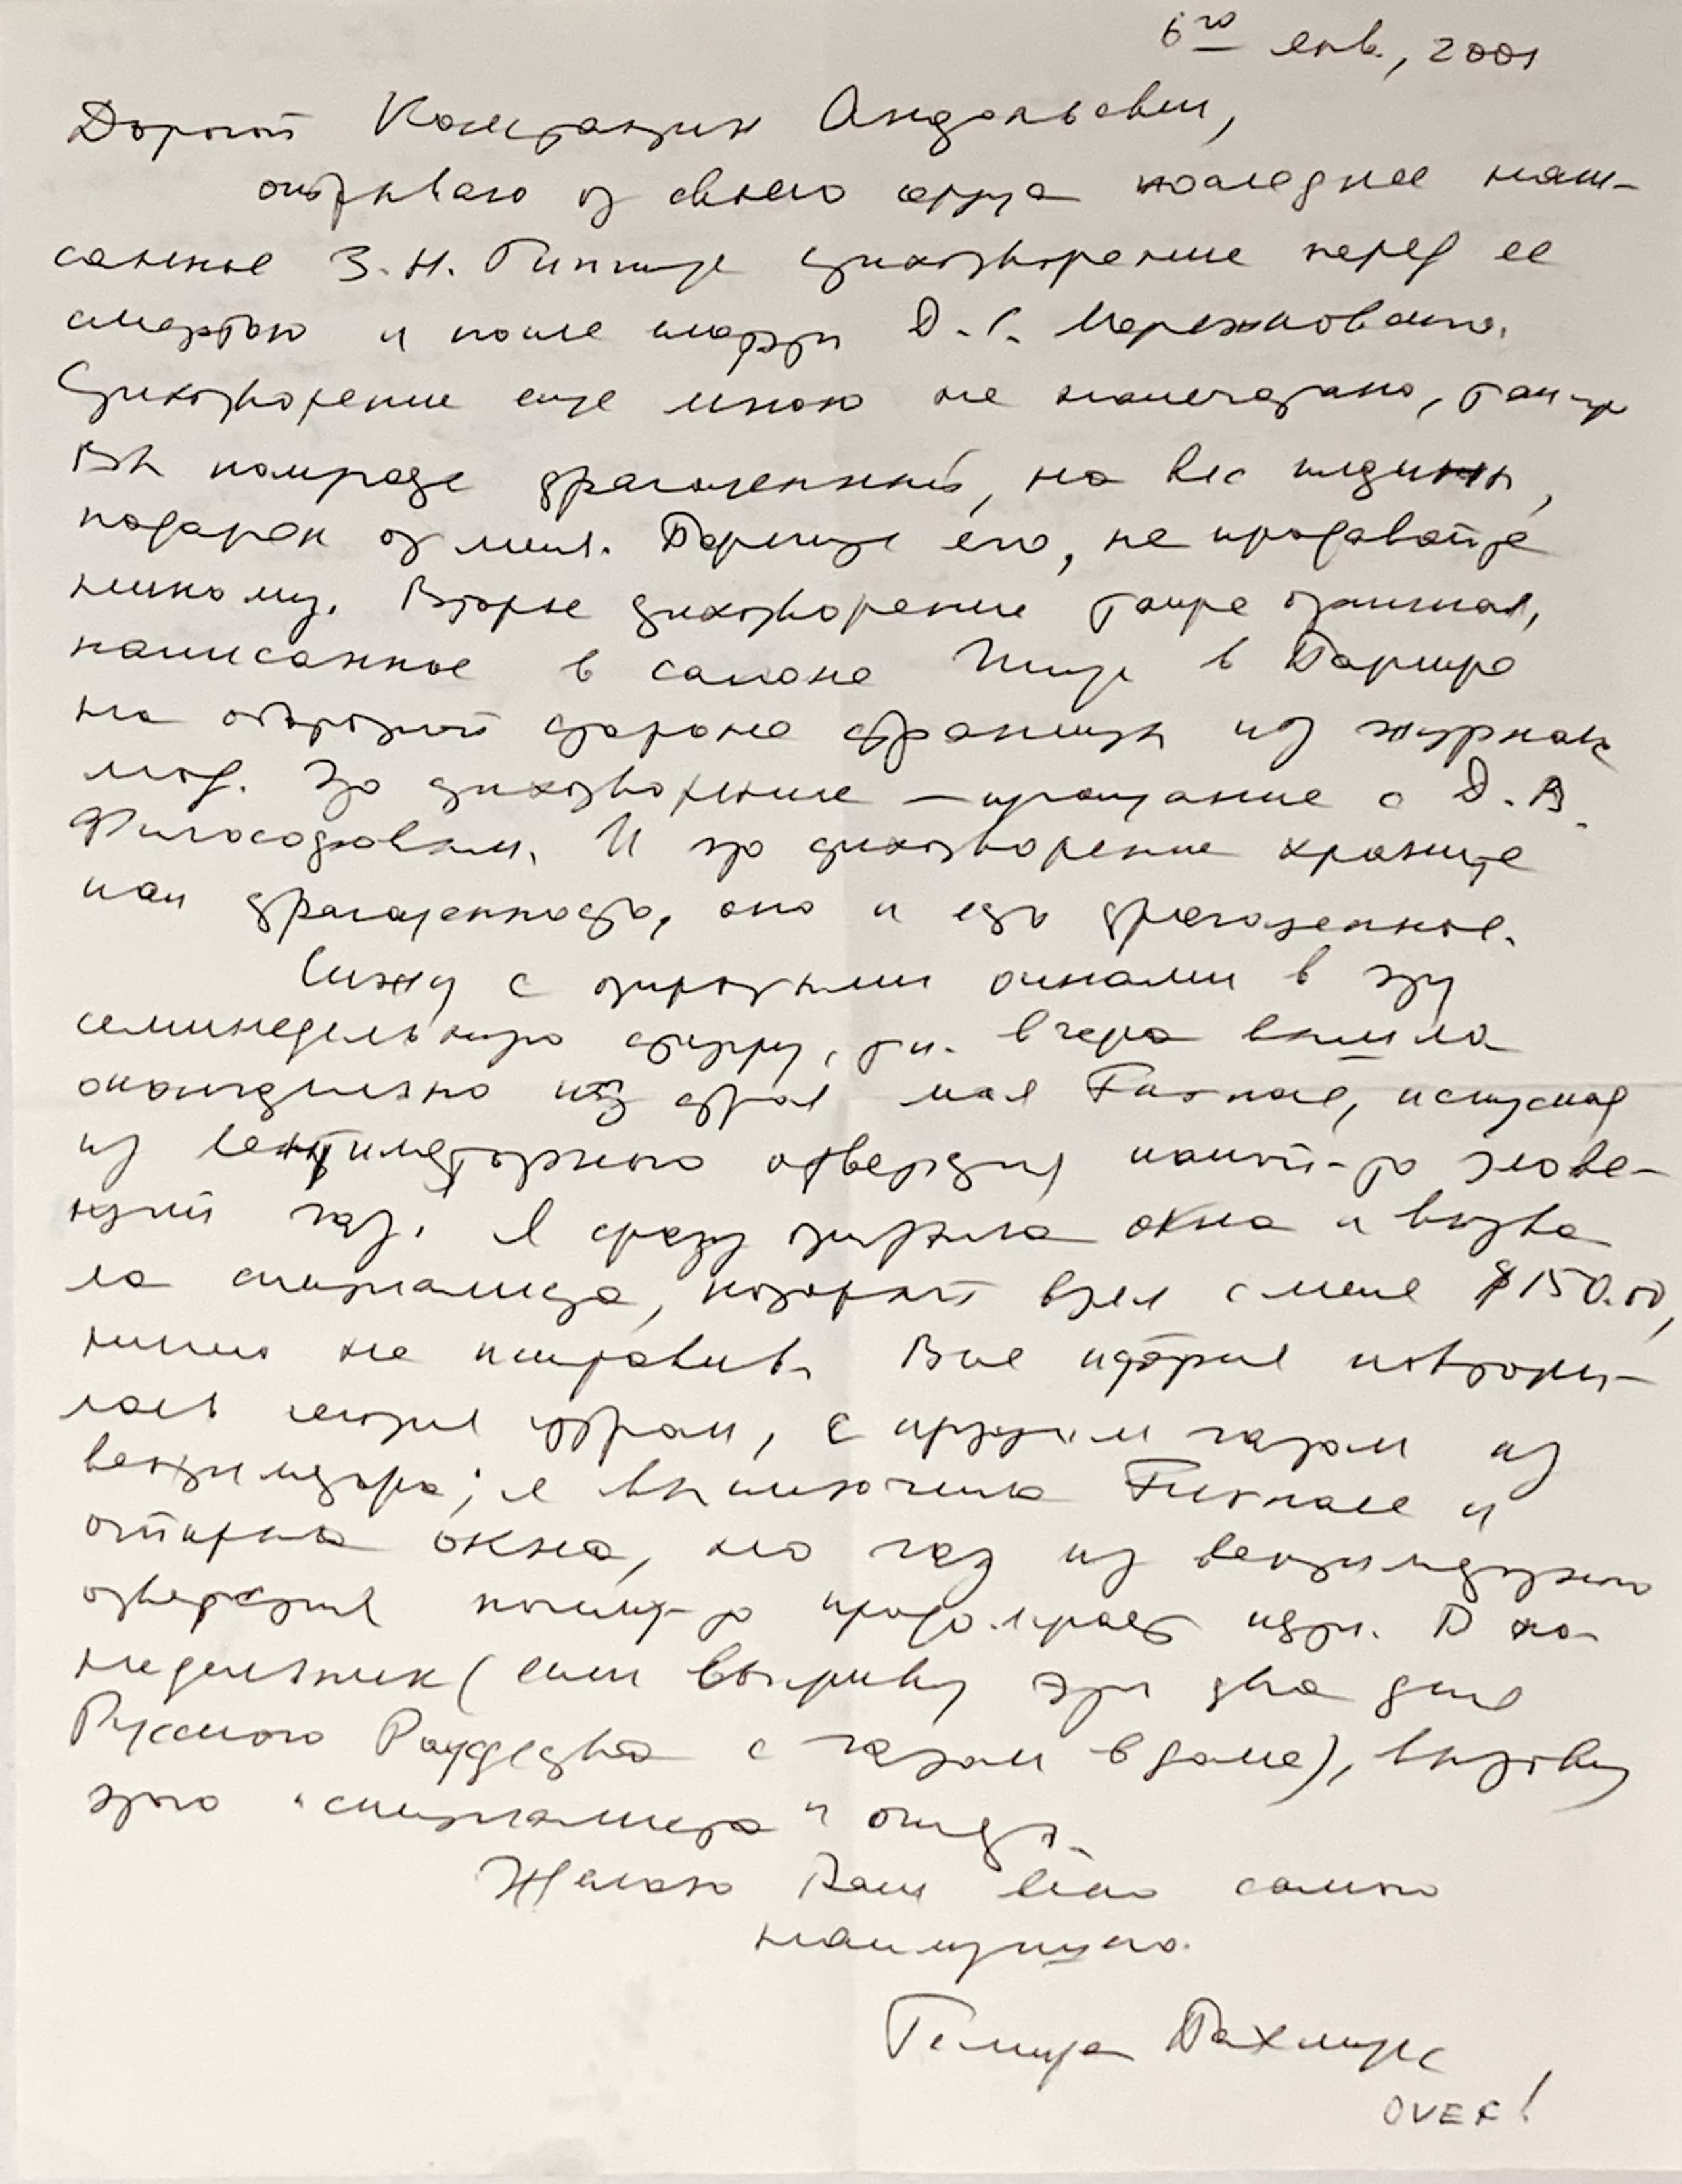 6го янв., 2001
Дорогой Константин Андольевич,
отрываю от своего сердца последнее напи-
санное З.Н. Гиппиус стихотворение перед ее
смертью и после смерти Д.С. Мережковского.
Стихотворение еще мною не напечатано, так что
Вы получаете драгоценный, на вес
подарок от меня. Берегите его, не продавайте
никому. Второе стихотворение тоже оригинал,
написанное в салоне в Париже
на оборотной стороне страницы из журнала
мод. Это стихотворение — прощание с Д.В.
Философовым. И это стихотворение храните
как драгоценность, оно и есть драгоценное.
Сижу с открытыми окнами в эту
семинедельную стужу, т.к. вчера вышла
окончательно из строя моя Furnace, испуская
из вентиляторного отверстия какой-то злове-
щий газ. Я сразу открыла окна и вызва
ла специалиста, который взял с меня $150.00,
ничего не исправив. Вся история повтори-
лась сегодня утром, с густым газом из
вентилятора; я выключила Furnace и
открыла окна, но газ из вентиляторного
отверстия почему-то продолжает идти. В по-
недельник (если выживу эти два дня
Русского Рождества с газом в доме), вызову
этого "специалиста" опять.
Желаю Вам всего самого
наилучшего.
Темира Пахмусс
OVER!